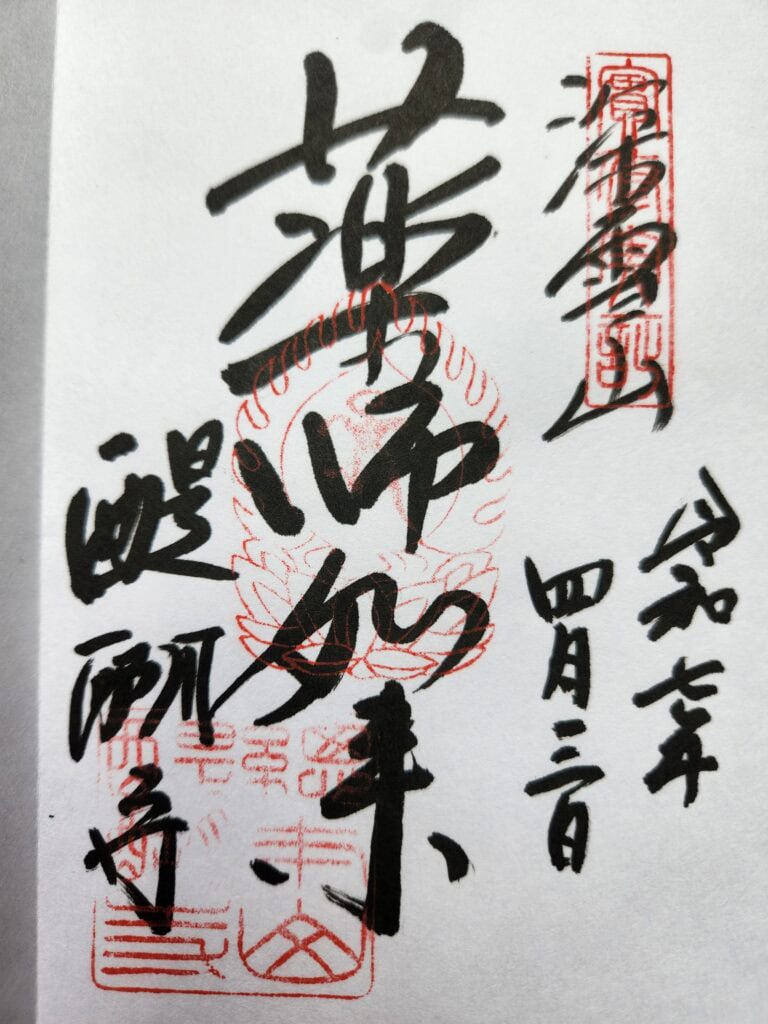 深雪山
令和七年
四月三日
薬師如来
醍醐寺